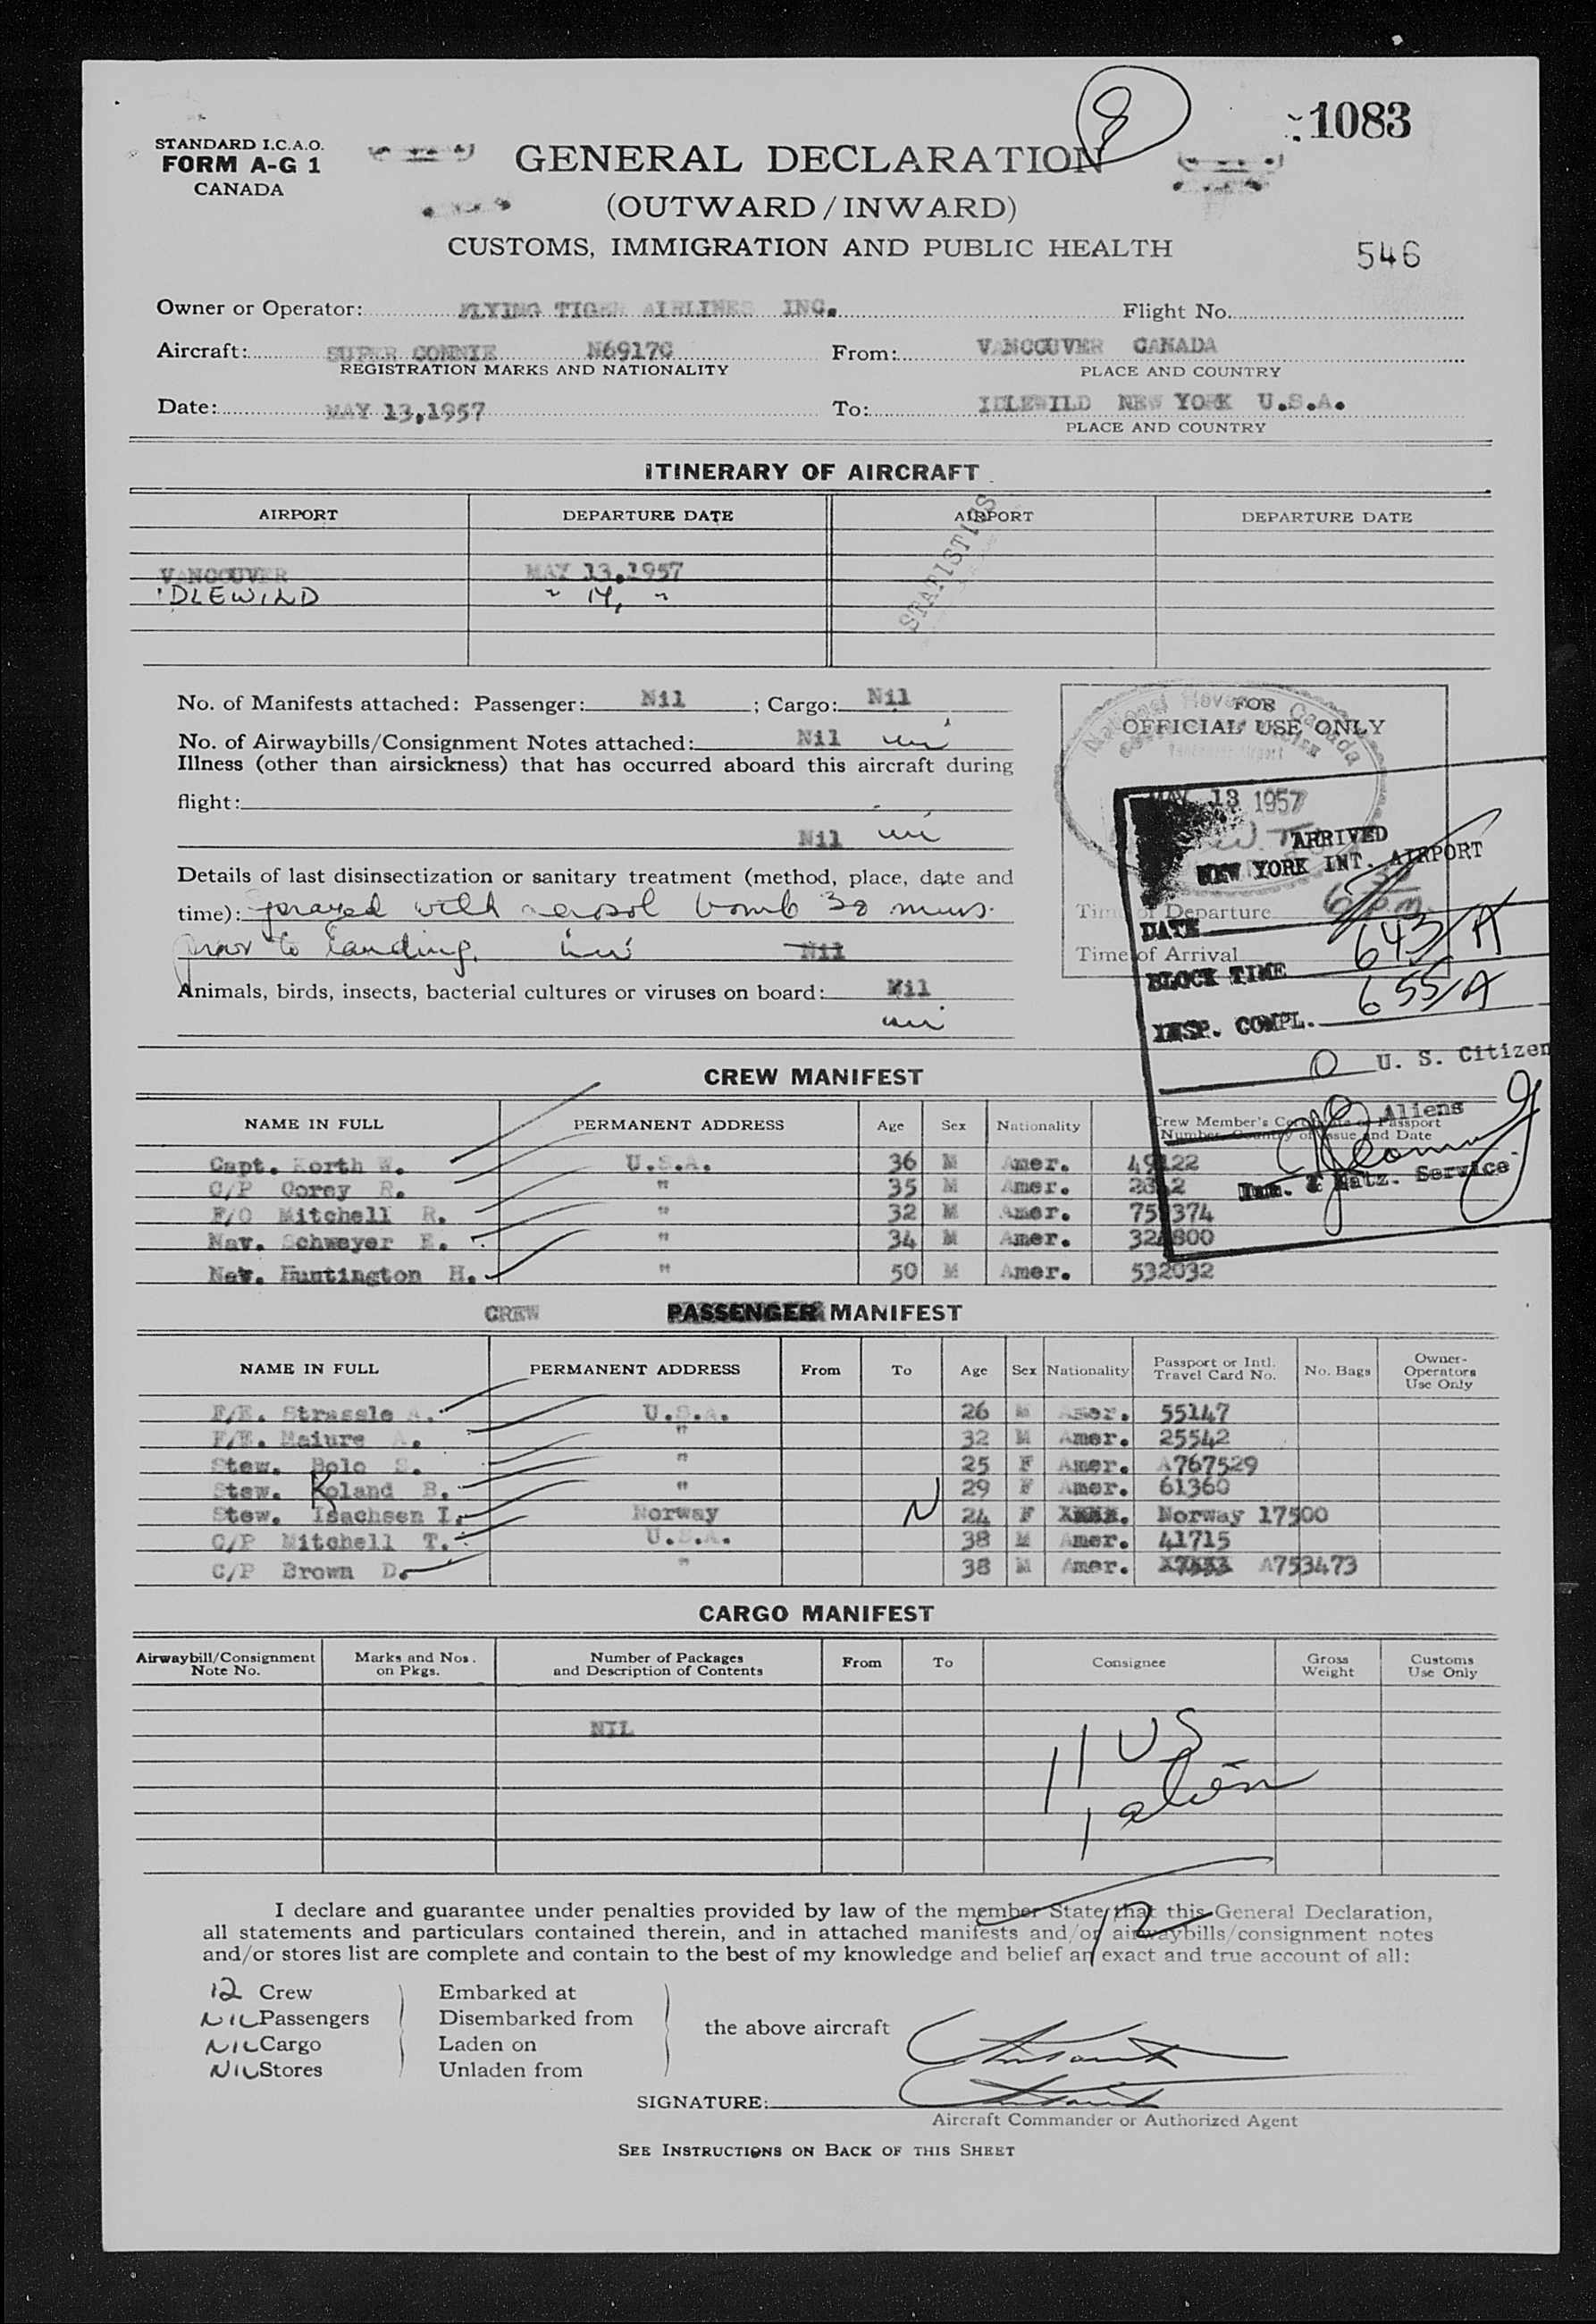 8
1083
STANDARD I.C.A.O.
FORM A-G 1
CANADA
GENERAL DECLARATION
(OUTWARD/INWARD)
CUSTOMS, IMMIGRATION AND PUBLIC HEALTH
546
Owner or Operator: FLYING TIGER AIRLINES INC. Flight No.
Aircraft: SUPER CONNIE N6917C From: VANCOUVER CANADA
REGISTRATION MARKS AND NATIONALITY PLACE AND COUNTRY
Date: MAY 13,1957 To: IDLEWILD NEW YORK U.S.A.
PLACE AND COUNTRY
ITINERARY OF AIRCRAFT
AIRPORT DEPARTURE DATE AIRPORT DEPARTURE DATE
STATISTICS
VANCOUVER MAY 13,1957
IDLEWILD " 14, "
No. of Manifests attached: Passenger: Nil ; Cargo: Nil
No. of Airwaybills/Consignment Notes attached: Nil
Illness (other than airsickness) that has occurred aboard this aircraft during
flight:
Nil
Details of last disinsectization or sanitary treatment (method, place, date and
time): Sprayed with aerosol bomb 30 mins.
prior to landing. Nil
Animals, birds, insects, bacterial cultures or viruses on board: Nil
FOR
OFFICIAL USE ONLY
National Revenue Canada
Vancouver Airport
MAY 13 1957
Time of Departure
Time of Arrival
ARRIVED
NEW YORK INT. AIRPORT
DATE
BLOCK TIME 643/A
INSP. COMPL. 655/A
0 U. S. Citizen
Aliens
Imm. & Natz. Service
CREW MANIFEST
NAME IN FULL PERMANENT ADDRESS Age Sex Nationality Crew Member's Certificate or Passport
Number, Country of Issue and Date
Capt. Korth W. U.S.A. 36 M Amer. 49122
C/P Corey R. " 35 M Amer. 2842
F/O Mitchell R. " 32 M Amer. 758374
Nav. Schweyer E. " 34 M Amer. 324800
Nav. Huntington H. " 50 M Amer. 532032
CREW PASSENGER MANIFEST
NAME IN FULL PERMANENT ADDRESS From To Age Sex Nationality Passport or Intl. Travel Card No. No. Bags Owner-Operators Use Only
F/E. Strassle A. U.S.A. 26 M Amer. 55147
F/E. Maiure A. " 32 M Amer. 25542
Stew. Bolo S. " 25 F Amer. A767529
Stew. Roland B. " 29 F Amer. 61360
Stew. Isachsen I. Norway N 24 F Norway 17500
C/P Mitchell T. U.S.A. 38 M Amer. 41715
C/P Brown D. " 38 M Amer. A753473
CARGO MANIFEST
Airwaybill/Consignment Note No. Marks and Nos. on Pkgs. Number of Packages and Description of Contents From To Consignee Gross Weight Customs Use Only
NIL
11 US
1 alien
12
I declare and guarantee under penalties provided by law of the member State that this General Declaration,
all statements and particulars contained therein, and in attached manifests and/or airwaybills/consignment notes
and/or stores list are complete and contain to the best of my knowledge and belief an exact and true account of all:
12 Crew Embarked at
NIL Passengers Disembarked from
the above aircraft
NIL Cargo Laden on
NIL Stores Unladen from
SIGNATURE:
Aircraft Commander or Authorized Agent
SEE INSTRUCTIONS ON BACK OF THIS SHEET